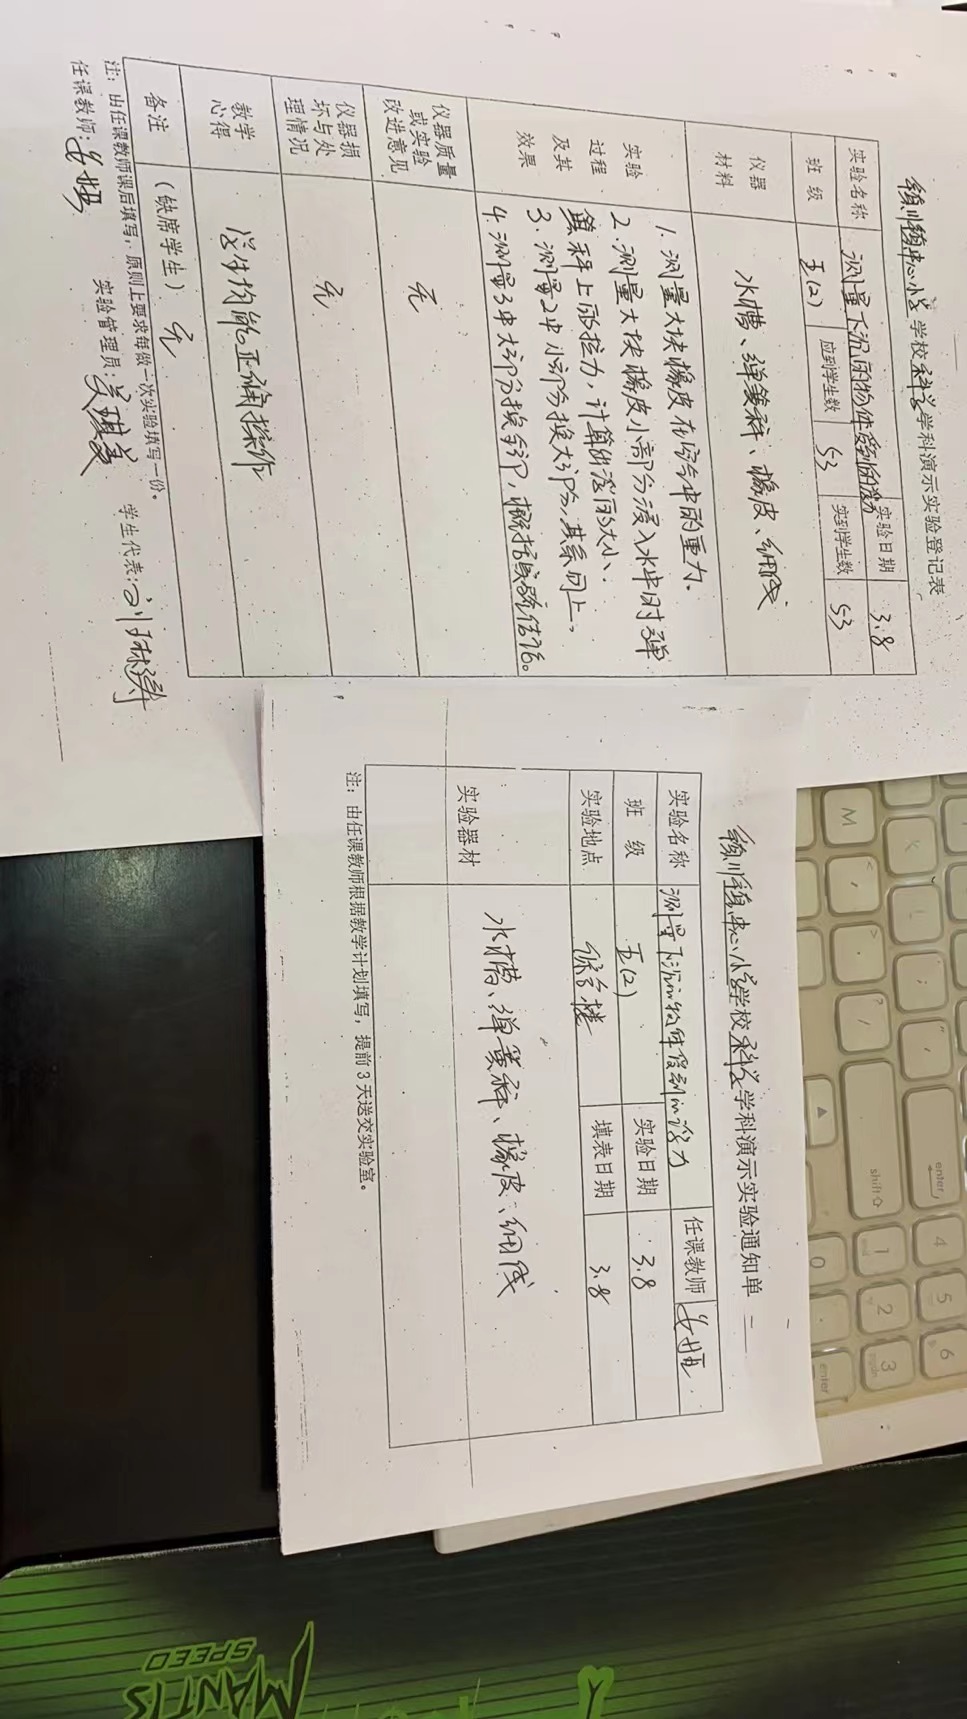 颍川镇中心小学 学校 科学 学科演示实验登记表
实验名称 测量下沉的物体受到的浮力 实验日期 3.8
班 级 五(2) 应到学生数 53 实到学生数 53
仪器
材料
水槽、弹簧秤、橡皮、细线
实验
过程
及其
效果
1. 测量大块橡皮在空气中的重力。
2. 测量大块橡皮小部分浸入水中时弹
簧秤上的拉力，计算出浮力的大小。
3. 测量2中小部分换大部分，其余同上，
4. 测量3中大部分换全部，概括实验结论。
仪器质量
或实验
改进意见
无
仪器损
坏与处
理情况
无
教学
心得
学生均能正确操作
备注 (缺席学生) 无
注：由任课教师课后填写，原则上要求每做一次实验填写一份。
任课教师: 实验管理员: 学生代表:
颍川镇中心小学 学校 科学 学科演示实验通知单
实验名称 测量下沉的物体受到的浮力 任课教师
班 级 五(2) 实验日期 3.8
实验地点 综合楼 填表日期 3.8
实验器材 水槽、弹簧秤、橡皮、细线
注：由任课教师根据教学计划填写，提前3天送交实验室。
M
<
,
>
.
?
/
:
;
"
'
enter
shift
0
1
2
3
4
5
6
enter
MANTIS
SPEED